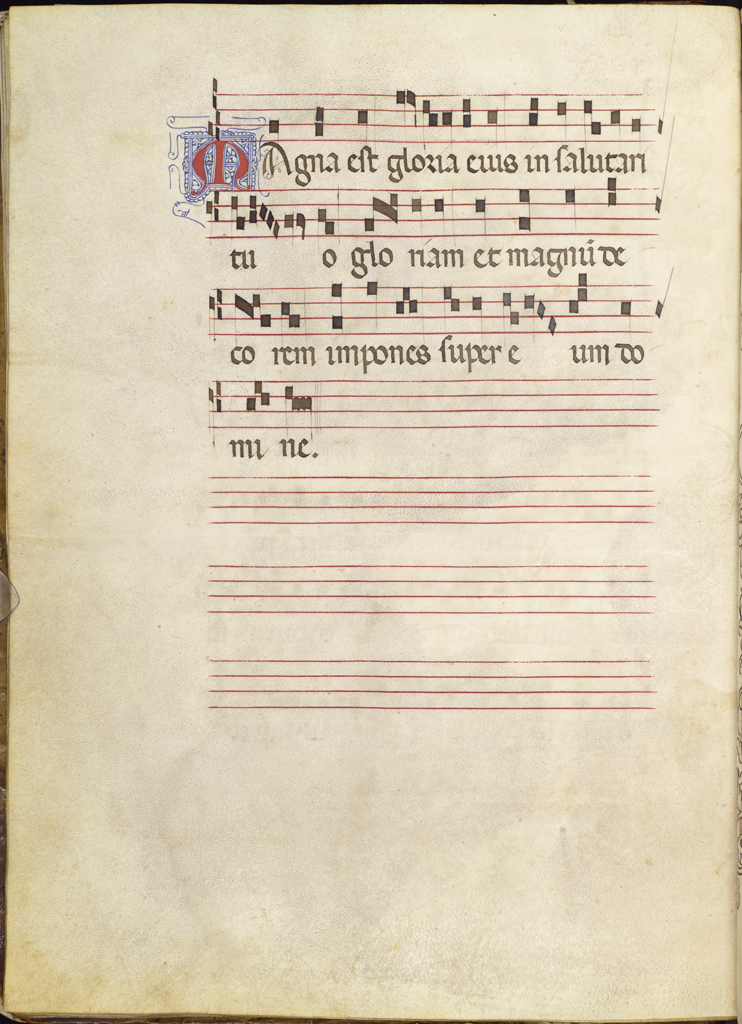 MAgna est gloria eius in salutari
tu o glo riam et magnū de
co rem impones super e um do
mi ne.